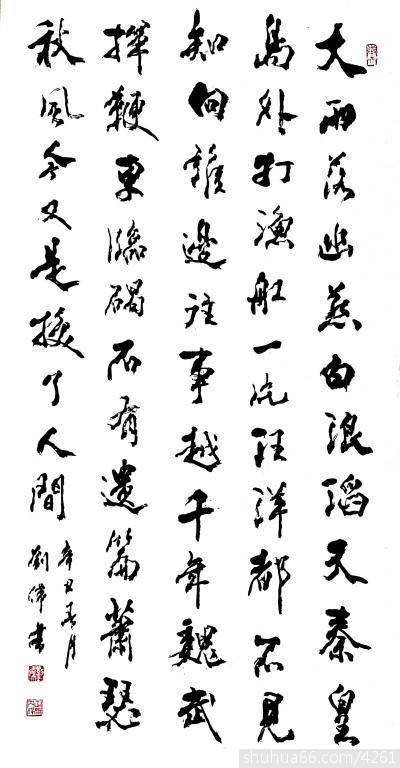 大雨落幽燕白浪滔天秦皇
島外打漁船一片汪洋都不見
知向誰邊往事越千年魏武
揮鞭東臨碣石有遺篇蕭瑟
秋風今又是換了人間
辛丑春月
劉偉書
shuhua66.com/4261